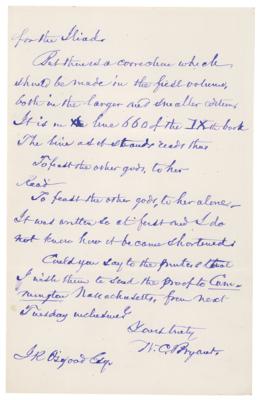 for the Iliad.
But there is a correction which
should be made in the first volume,
both in the larger and smaller editions
It is in line 660 of the IXth book
The line as it stands reads thus
To feast the other gods, to her
Read
To feast the other gods, to her alone.
It was written so at first and I do
not know how it became shortened
Could you say to the printers that
I wish them to send the proof to Cum-
mington Massachusetts, from next
Tuesday inclusive?
Yours truly
W. C. Bryant
J. R. Osgood Esq.